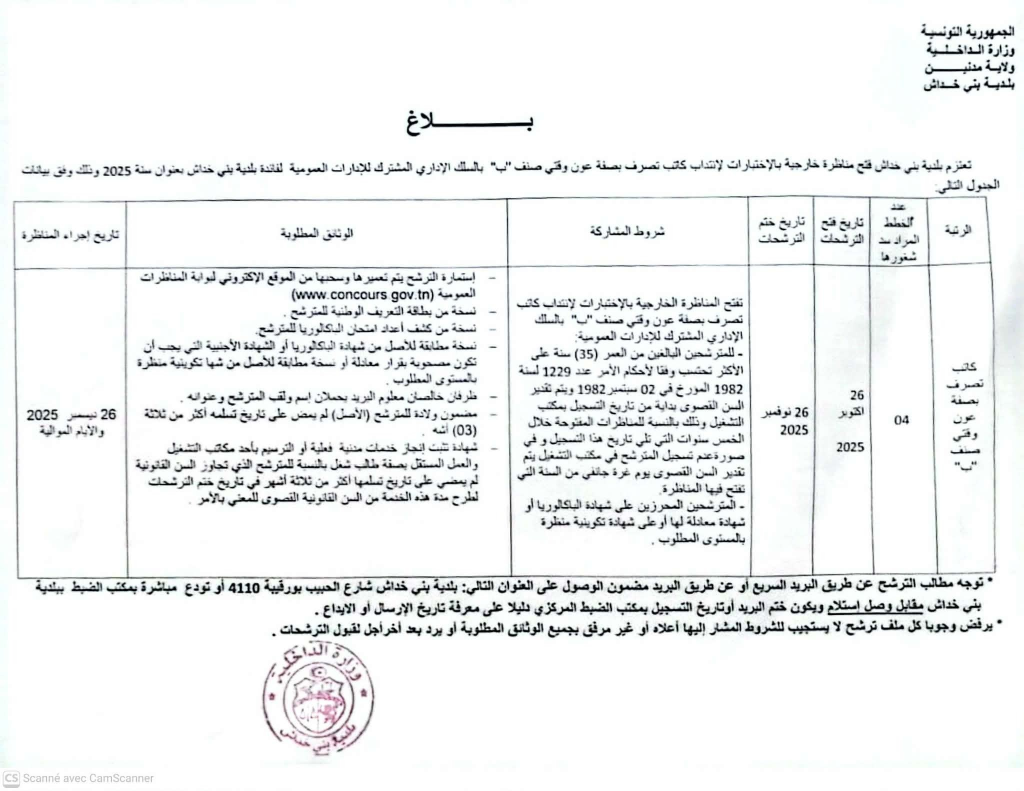 الجمهورية التونسية
وزارة الـداخلـــية
ولاية مدنيـــــــن
بلديـة بني خداش
بـــــــــــلاغ
تعتزم بلدية بني خداش فتح مناظرة خارجية بالإختبارات لإنتداب كاتب تصرف بصفة عون وقتي صنف "ب" بالسلك الإداري المشترك للإدارات العمومية لفائدة بلدية بني خداش بعنوان سنة 2025 وذلك وفق بيانات
الجدول التالي:
الرتبة
عدد
الخطط
المراد سد
شغورها
تاريخ فتح
الترشحات
تاريخ ختم
الترشحات
شروط المشاركة
الوثائق المطلوبة
تاريخ إجراء المناظرة
كاتب
تصرف
بصفة
عون
وقتي
صنف
"ب"
04
26
اكتوبر
2025
26 نوفمبر
2025
تفتح المناظرة الخارجية بالإختبارات لإنتداب كاتب
تصرف بصفة عون وقتي صنف "ب" بالسلك
الإداري المشترك للإدارات العمومية:
- للمترشحين البالغين من العمر (35) سنة على
الأكثر تحتسب وفقا لأحكام الأمر عدد 1229 لسنة
1982 المورخ في 02 سبتمبر 1982 ويتم تقدير
السن القصوى بداية من تاريخ التسجيل بمكتب
التشغيل وذلك بالنسبة للمناظرات المفتوحة خلال
الخمس سنوات التي تلي تاريخ هذا التسجيل و في
صورةعدم تسجيل المترشح في مكتب التشغيل يتم
تقدير السن القصوى يوم غرة جانفي من السنة التي
تفتح فيها المناظرة.
- المترشحين المحرزين على شهادة الباكالوريا أو
شهادة معادلة لها أوعلى شهادة تكوينية منظرة
بالمستوى المطلوب .
- إستمارة الترشح يتم تعميرها وسحبها من الموقع الإكتروني لبوابة المناظرات
العمومية (www.concours.gov.tn)
- نسخة من بطاقة التعريف الوطنية للمترشح .
- نسخة من كشف أعداد امتحان الباكالوريا للمترشح.
- نسخة مطابقة للأصل من شهادة الباكالوريا أو الشهادة الأجنبية التي يجب أن
تكون مصحوبة بقرار معادلة أو نسخة مطابقة للأصل من شها تكوينية منظرة
بالمستوى المطلوب .
- ظرفان خالصان معلوم البريد يحملان إسم ولقب المترشح وعنوانه .
- مضمون ولادة للمترشح (الأصل) لم يمض على تاريخ تسلمه أكثر من ثلاثة
(03) أشه .
- شهادة تثبت إنجاز خدمات مدنية فعلية أو الترسيم بأحد مكاتب التشغيل
والعمل المستقل بصفة طالب شغل بالنسبة للمترشح الذي تجاوز السن القانونية
لم يمضي على تاريخ تسلمها أكثر من ثلاثة أشهر في تاريخ ختم الترشحات
لطرح مدة هذه الخدمة من السن القانونية القصوى للمعني بالأمر .
26 ديسمبر 2025
والايام الموالية
* توجه مطالب الترشح عن طريق البريد السريع أو عن طريق البريد مضمون الوصول على العنوان التالي: بلدية بني خداش شارع الحبيب بورقيبة 4110 أو تودع مباشرة بمكتب الضبط ببلدية
بني خداش مقابل وصل إستلام ويكون ختم البريد أوتاريخ التسجيل بمكتب الضبط المركزي دليلا على معرفة تاريخ الإرسال أو الايداع .
* يرفض وجوبا كل ملف ترشح لا يستجيب للشروط المشار إليها أعلاه أو غير مرفق بجميع الوثائق المطلوبة أو يرد بعد أخرأجل لقبول الترشحات .
وزارة الداخلية
بلدية بني خداش
CS Scanné avec CamScanner